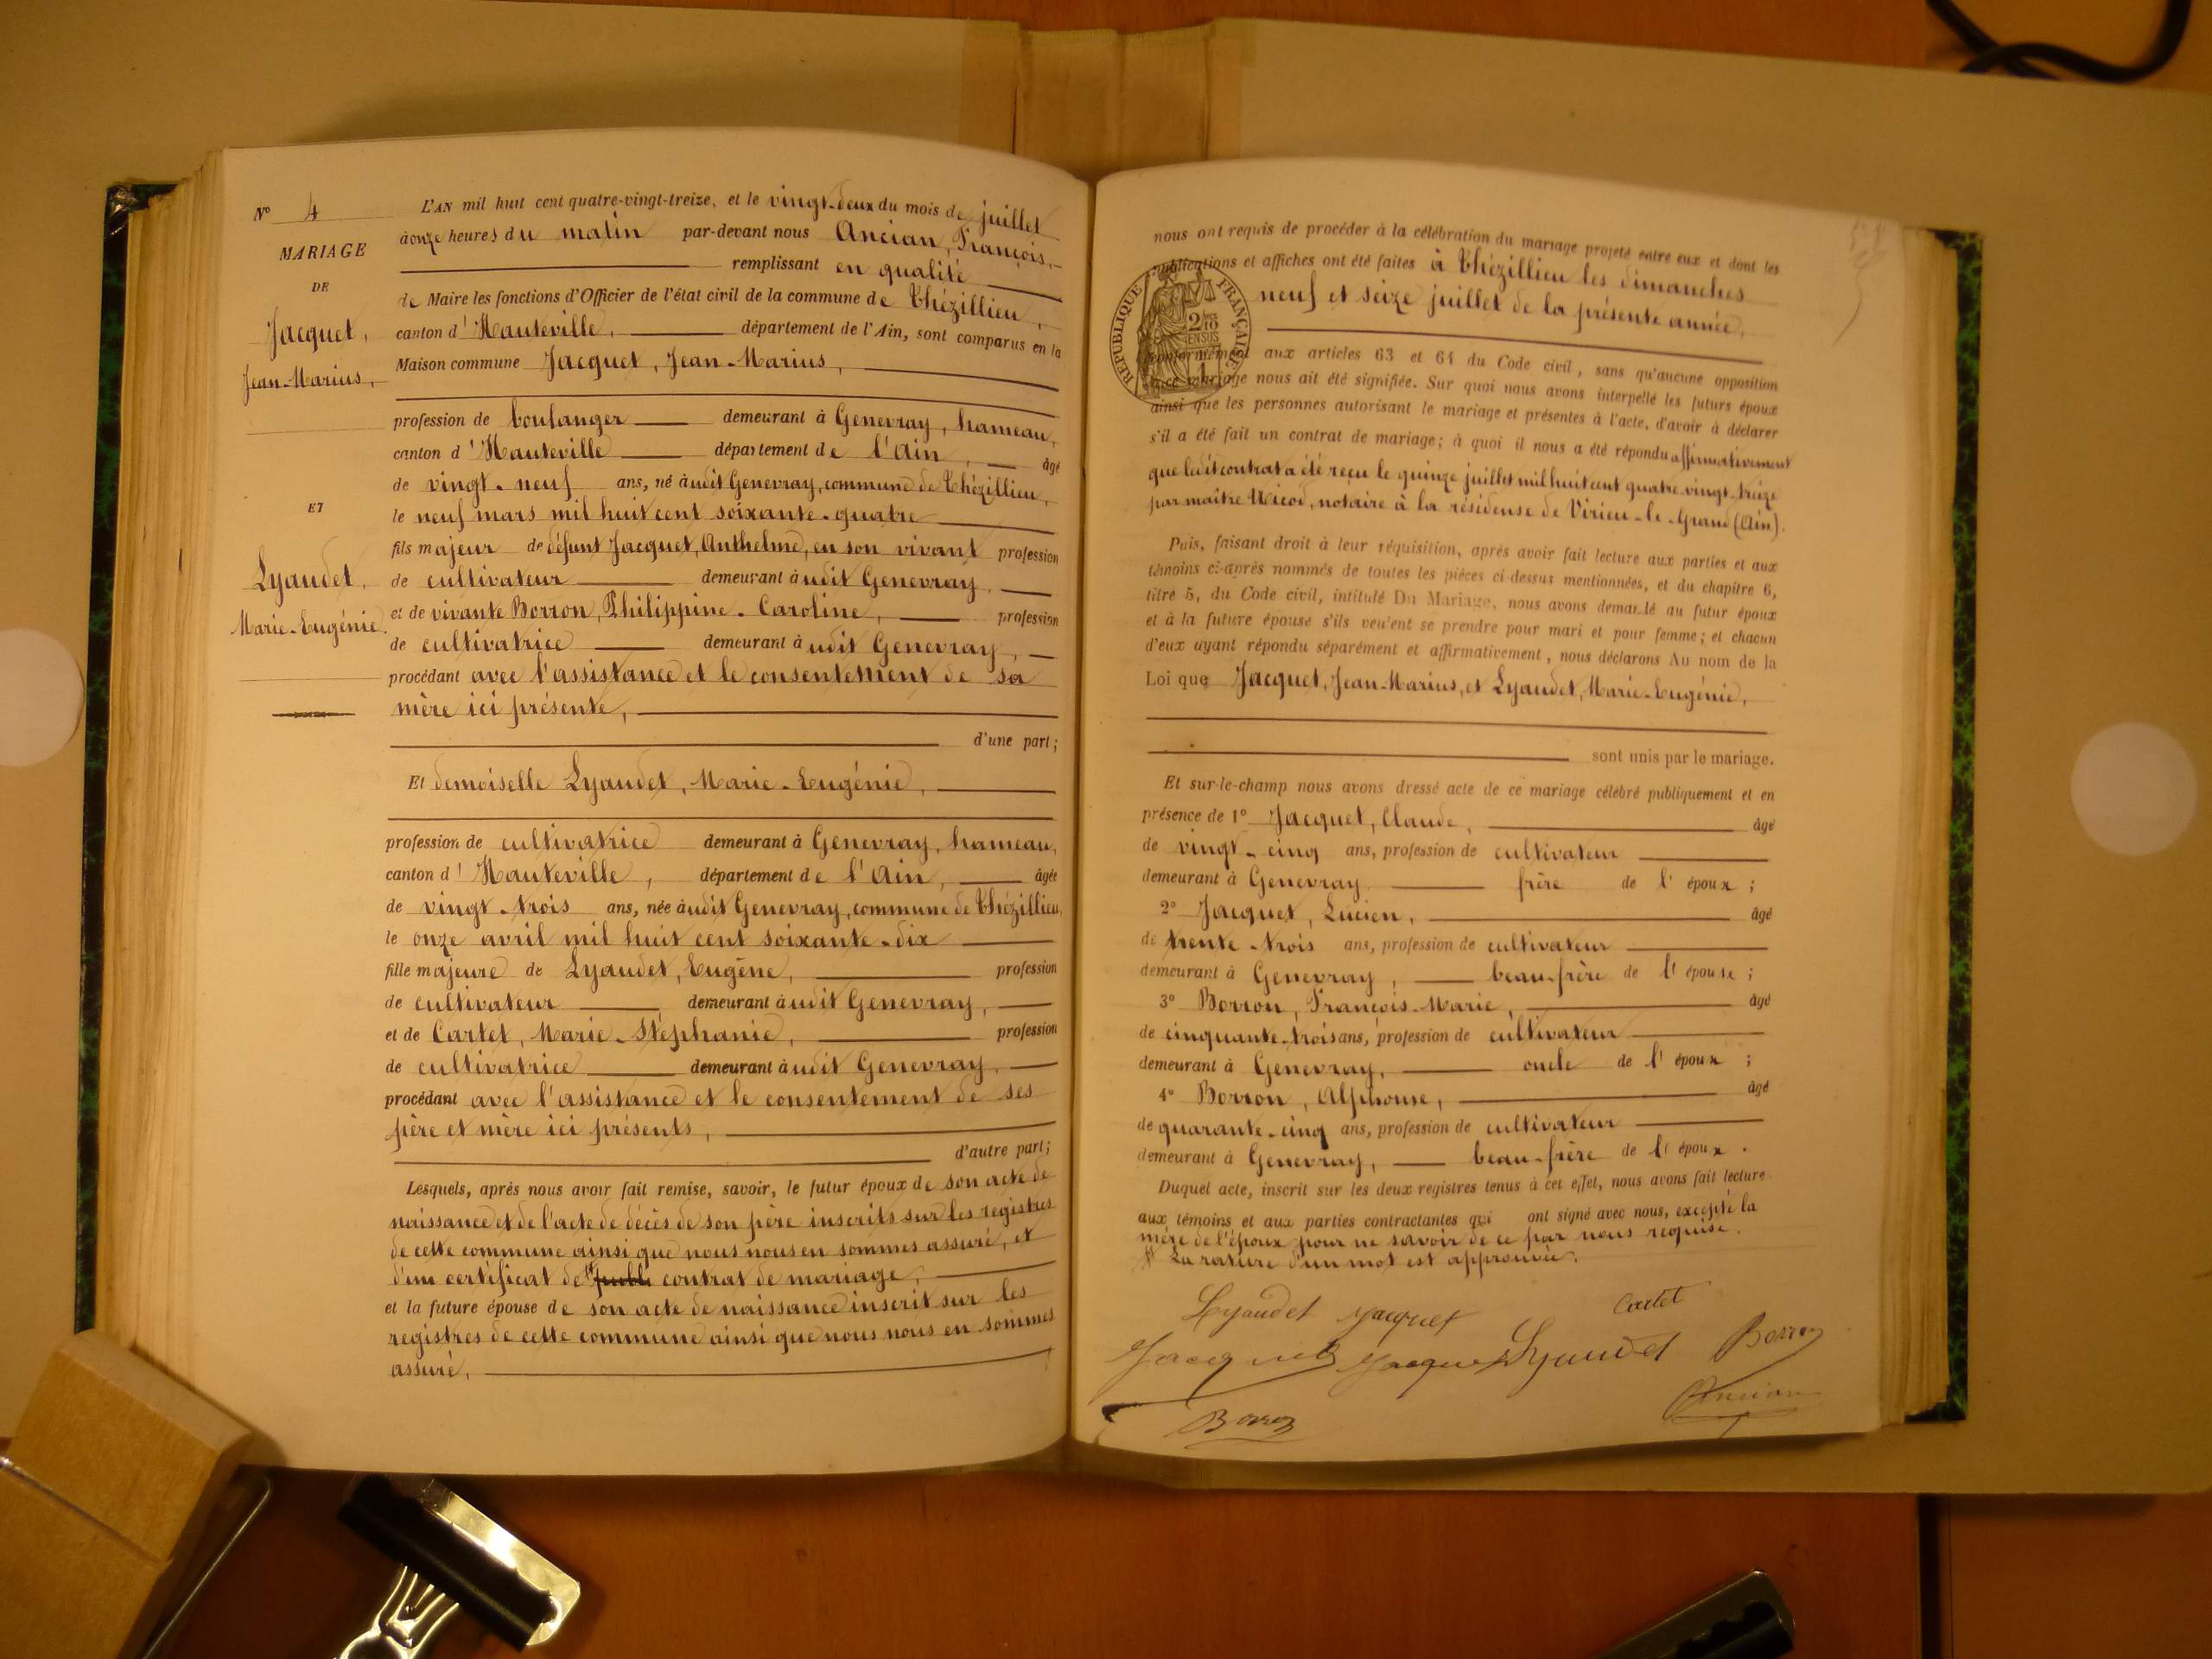 N° 4
MARIAGE
DE
Jacquet,
Jean-Marius,
ET
Lyaudet,
Marie-Eugénie.
L'AN mil huit cent quatre-vingt-treize, et le vingt-deux du mois de juillet
à onze heures du matin par-devant nous Ancian, François,
remplissant en qualité
de Maire les fonctions d'Officier de l'état civil de la commune de Thézillieu,
canton d'Hauteville, département de l'Ain, sont comparus en la
Maison commune Jacquet, Jean-Marius,
profession de boulanger demeurant à Genevray, hameau,
canton d'Hauteville département de l'Ain, âgé
de vingt-neuf ans, né àudit Genevray, commune de Thézillieu,
le neuf mars mil huit cent soixante-quatre
fils majeur de défunt Jacquet, Anthelme, en son vivant profession
de cultivateur demeurant àudit Genevray,
et de vivante Borron, Philippine-Caroline, profession
de cultivatrice demeurant àudit Genevray,
procédant avec l'assistance et le consentement de sa
mère ici présente,
d'une part;
Et demoiselle Lyaudet, Marie-Eugénie,
profession de cultivatrice demeurant à Genevray, hameau,
canton d'Hauteville, département de l'Ain, âgée
de vingt-trois ans, née àudit Genevray, commune de Thézillieu,
le onze avril mil huit cent soixante-dix
fille majeure de Lyaudet, Eugène, profession
de cultivateur, demeurant àudit Genevray,
et de Cartet, Marie-Stéphanie, profession
de cultivatrice demeurant àudit Genevray,
procédant avec l'assistance et le consentement de ses
père et mère ici présents,
d'autre part;
Lesquels, après nous avoir fait remise, savoir, le futur époux de son acte de
naissance et de l'acte de décès de son père inscrits sur les registres
de cette commune ainsi que nous nous en sommes assuré, et
d'un certificat de publi contrat de mariage,
et la future épouse de son acte de naissance inscrit sur les
registres de cette commune ainsi que nous nous en sommes
assuré,
nous ont requis de procéder à la célébration du mariage projeté entre eux et dont les
publications et affiches ont été faites à Thézillieu les dimanches
neuf et seize juillet de la présente année,
RÉPUBLIQUE FRANÇAISE
2/10 EN SUS
conformément aux articles 63 et 64 du Code civil, sans qu'aucune opposition
à ce mariage nous ait été signifiée. Sur quoi nous avons interpellé les futurs époux
ainsi que les personnes autorisant le mariage et présentes à l'acte, d'avoir à déclarer
s'il a été fait un contrat de mariage; à quoi il nous a été répondu affirmativement
que ledit contrat a été reçu le quinze juillet mil huit cent quatre-vingt-treize
par maître Nicod, notaire à la résidense de Virieu-le-Grand (Ain).
Puis, faisant droit à leur réquisition, après avoir fait lecture aux parties et aux
témoins ci-après nommés de toutes les pièces ci-dessus mentionnées, et du chapitre 6,
titre 5, du Code civil, intitulé Du Mariage, nous avons demandé au futur époux
et à la future épouse s'ils veulent se prendre pour mari et pour femme; et chacun
d'eux ayant répondu séparément et affirmativement, nous déclarons Au nom de la
Loi que Jacquet, Jean-Marius, et Lyaudet, Marie-Eugénie,
sont unis par le mariage.
Et sur-le-champ nous avons dressé acte de ce mariage célébré publiquement et en
présence de 1° Jacquet, Claude, âgé
de vingt-cinq ans, profession de cultivateur
demeurant à Genevray frère de l'époux;
2° Jacquet, Lucien, âgé
de trente-trois ans, profession de cultivateur
demeurant à Genevray, beau-frère de l'épouse;
3° Borron, François-Marie, âgé
de cinquante-trois ans, profession de cultivateur
demeurant à Genevray, oncle de l'époux;
4° Borron, Alphonse, âgé
de quarante-cinq ans, profession de cultivateur
demeurant à Genevray, beau-frère de l'époux.
Duquel acte, inscrit sur les deux registres tenus à cet effet, nous avons fait lecture
aux témoins et aux parties contractantes qui ont signé avec nous, excepté la
mère de l'époux pour ne savoir de ce par nous requise.
# La rature d'un mot est approuvée.
Lyaudet Jacquet Cartet
Jacquet Jacquet Lyaudet Borron
Borron
Ancian